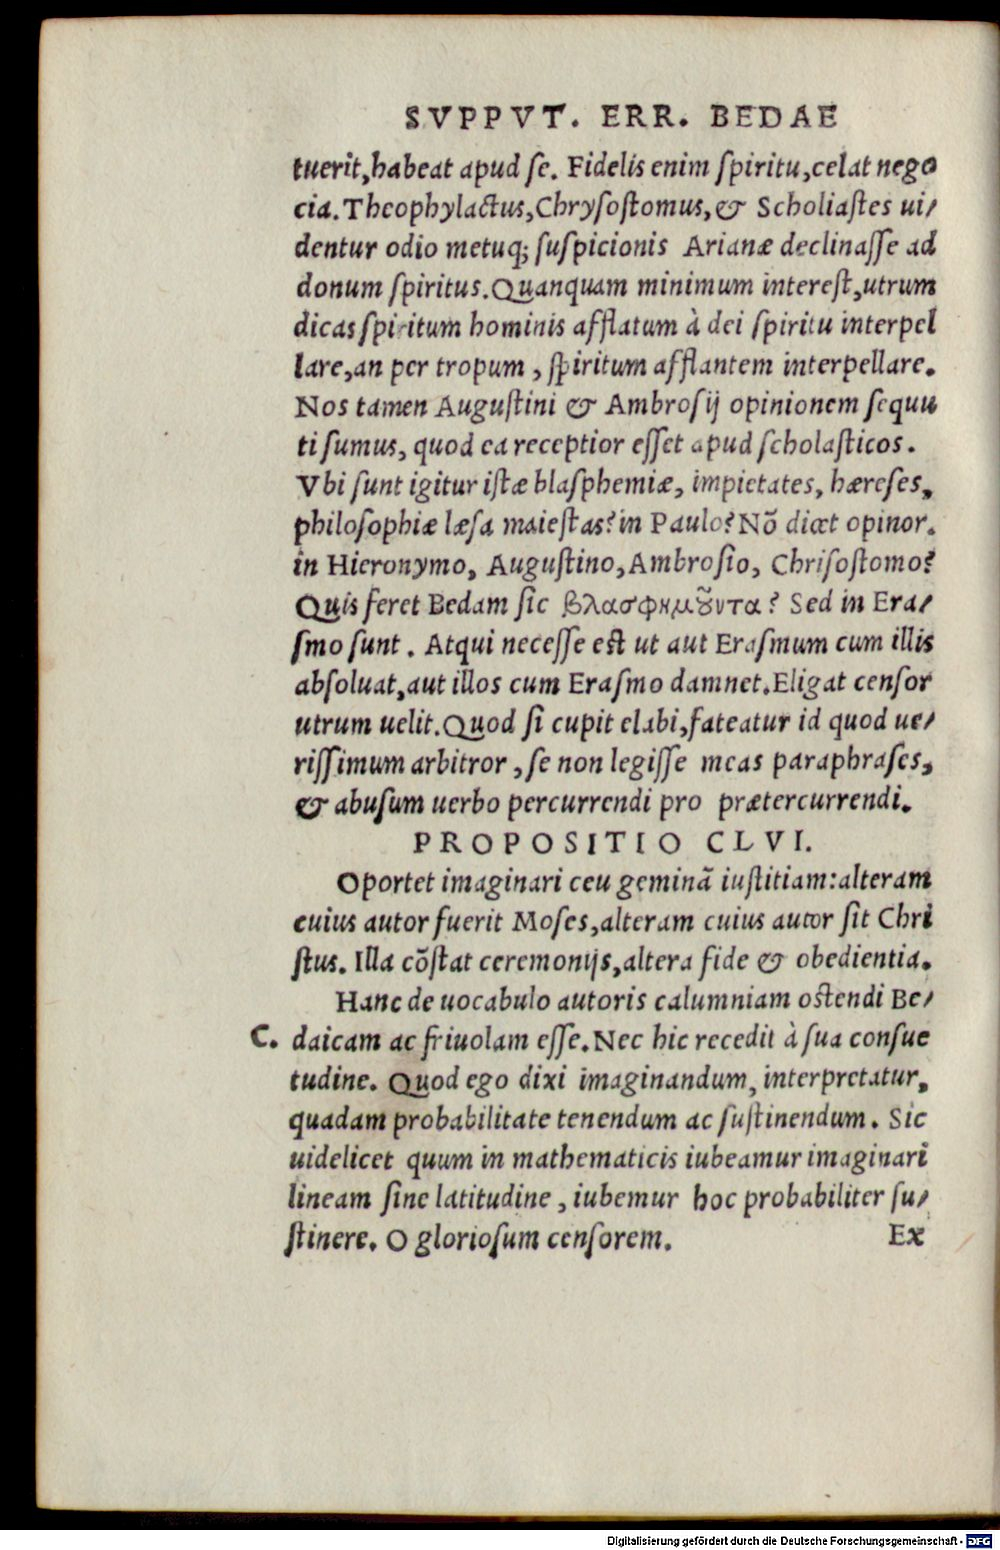 SVPPVT. ERR. BEDAE
tuerit, habeat apud se. Fidelis enim spiritu, celat nego
cia. Theophylactus, Chrysostomus, & Scholiastes ui/
dentur odio metuq; suspicionis Arianæ declinasse ad
donum spiritus. Quanquam minimum interest, utrum
dicas spiritum hominis afflatum à dei spiritu interpel
lare, an per tropum, spiritum afflantem interpellare.
Nos tamen Augustini & Ambrosij opinionem sequu
ti sumus, quod ea receptior esset apud scholasticos.
Vbi sunt igitur istæ blasphemiæ, impietates, hæreses,
philosophiæ læsa maiestas? in Paulo? Nõ dicet opinor.
in Hieronymo, Augustino, Ambrosio, Chrisostomo?
Quis feret Bedam sic βλασφημο͂υντα? Sed in Era/
smo sunt. Atqui necesse est ut aut Erasmum cum illis
absoluat, aut illos cum Erasmo damnet. Eligat censor
utrum uelit. Quod si cupit elabi, fateatur id quod ue/
rissimum arbitror, se non legisse meas paraphrases,
& abusum uerbo percurrendi pro prætercurrendi.
PROPOSITIO CLVI.
Oportet imaginari ceu geminã iustitiam: alteram
cuius autor fuerit Moses, alteram cuius autor sit Chri
stus. Illa cõstat ceremonijs, altera fide & obedientia.
Hanc de uocabulo autoris calumniam ostendi Be/
C. daicam ac friuolam esse. Nec hic recedit à sua consue
tudine. Quod ego dixi imaginandum, interpretatur,
quadam probabilitate tenendum ac sustinendum. Sic
uidelicet quum in mathematicis iubeamur imaginari
lineam sine latitudine, iubemur hoc probabiliter su/
stinere. O gloriosum censorem.
Ex
Digitalisierung gefördert durch die Deutsche Forschungsgemeinschaft - DFG